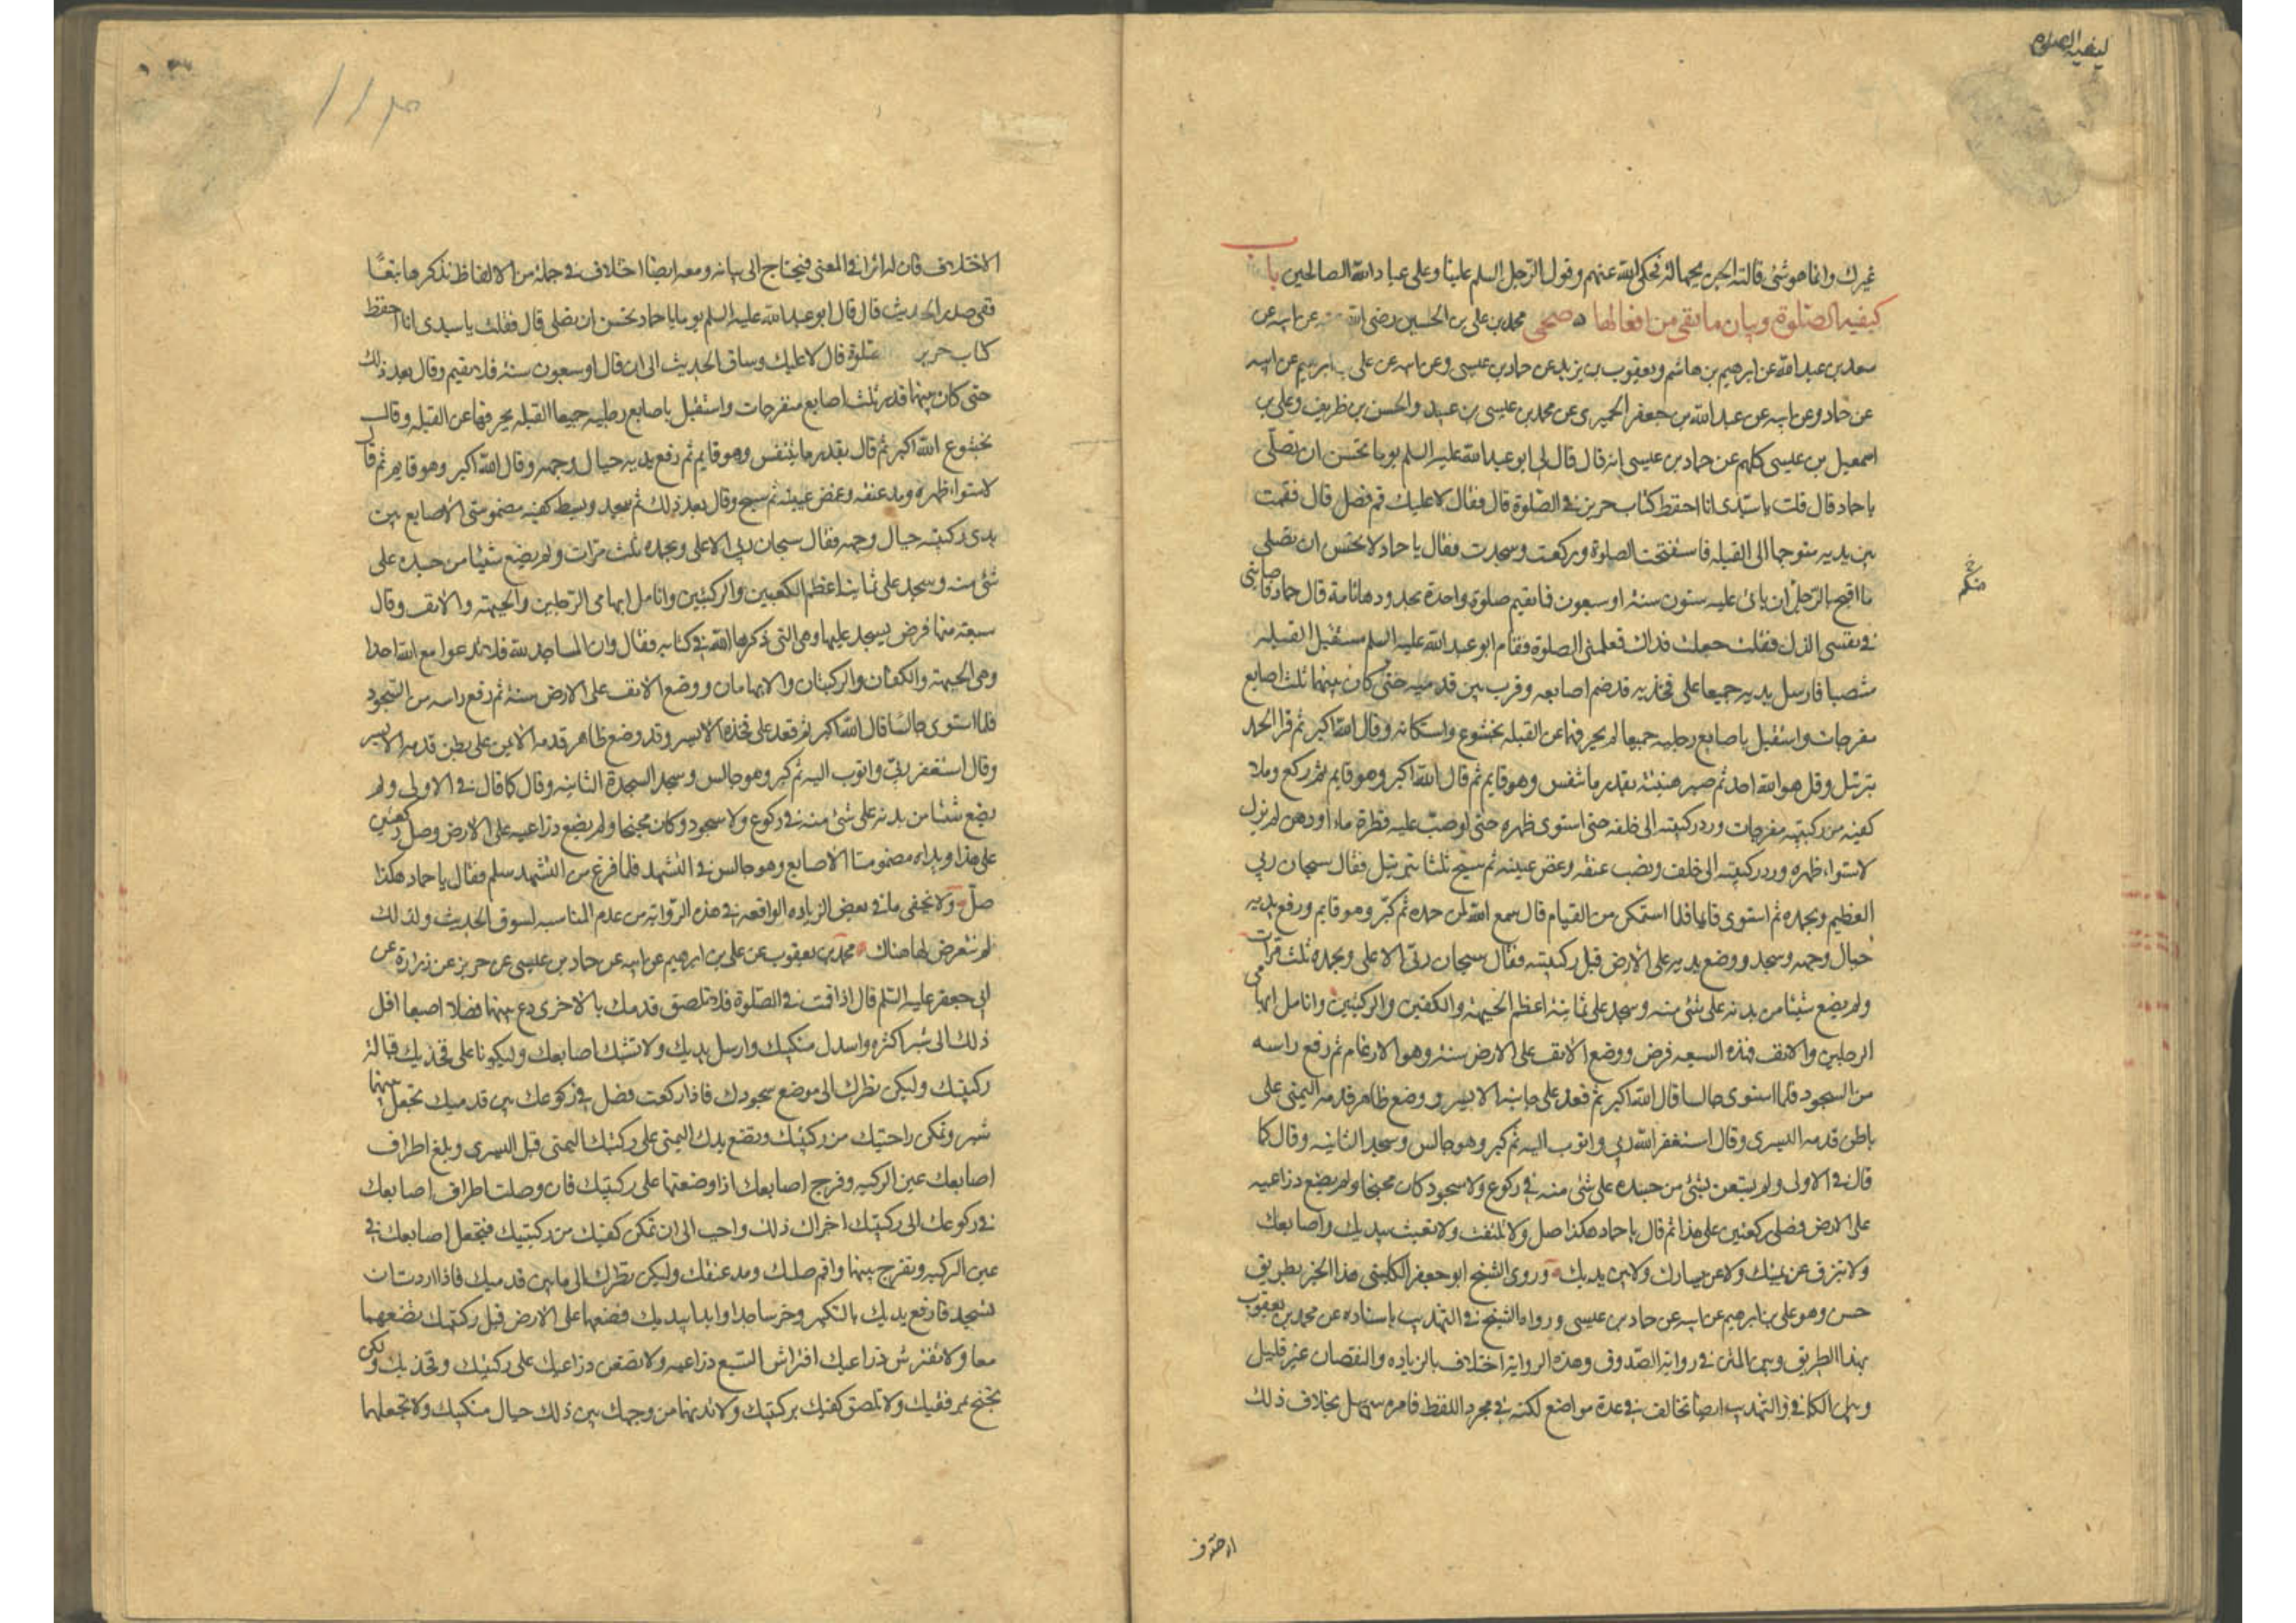 كيفية الصلوة
غيرك وانما هو شئ قالته الجن بجهالة فحكى الله عنهم وقول الرجل السلم علينا وعلى عباد الله الصالحين باب
كيفية الصلوة وبيان ما بقى من افعالها صحى محمد بن على بن الحسين رضى الله عنه عن ابيه عن
سعد بن عبد الله عن ابرهيم بن هاشم ويعقوب بن يزيد عن حماد بن عيسى وعن ابيه عن على بن ابرهيم عن ابيه
عن حماد وعن ابيه عن عبد الله بن جعفر الحميرى عن محمد بن عيسى بن عبيد والحسن بن ظريف وعلى بن
اسمعيل بن عيسى كلهم عن حماد بن عيسى انه قال قال لى ابو عبد الله عليه السلم يوما تحسن ان تصلى
يا حماد قال قلت يا سيدى انا احفظ كتاب حريز فى الصلوة قال فقال لا عليك قم فصل قال فقمت
بين يديه متوجها الى القبلة فاستفتحت الصلوة وركعت وسجدت فقال يا حماد لا تحسن ان تصلى
منكم
ما اقبح بالرجل ان ياتى عليه ستون سنة او سبعون فما يقيم صلوة واحدة بحدودها تامة قال حماد فاصابنى
فى نفسى الذل فقلت جعلت فداك فعلمنى الصلوة فقام ابو عبد الله عليه السلم مستقبل القبلة
منتصبا فارسل يديه جميعا على فخذيه قد ضم اصابعه وقرب بين قدميه حتى كان بينهما ثلث اصابع
مفرجات واستقبل باصابع رجليه جميعا لم يحرفهما عن القبلة بخشوع واستكانة وقال الله اكبر ثم قرا الحمد
بترتيل وقل هو الله احد ثم صبر هنيئة بقدر ما تنفس وهو قايم ثم قال الله اكبر وهو قايم ثم ركع وملا
كفيه من ركبتيه مفرجات ورد ركبتيه الى خلفه حتى استوى ظهره حتى لو صب عليه قطرة ماء او دهن لم تزل
لاستواء ظهره ورد ركبتيه الى خلف ونصب عنقه وغض عينيه ثم سبح ثلثا بترتيل فقال سبحان ربى
العظيم وبحمده ثم استوى قايما فلما استمكن من القيام قال سمع الله لمن حمده ثم كبر وهو قايم ورفع يديه
حيال وجهه وسجد ووضع يديه على الارض قبل ركبتيه فقال سبحان ربى الاعلى وبحمده ثلث مرات
ولم يضع شيئا من بدنه على شئ منه وسجد على ثمانية اعظم الجبهة والكفين والركبتين وانامل ابهامى
الرجلين والانف فهذه السبعة فرض ووضع الانف على الارض سنة وهو الارغام ثم رفع راسه
من السجود فلما استوى جالسا قال الله اكبر ثم قعد على جانبه الايسر ووضع ظاهر قدمه اليمنى على
باطن قدمه اليسرى وقال استغفر الله ربى واتوب اليه ثم كبر وهو جالس وسجد الثانية وقال كما
قال فى الاولى ولم يستعن بشئ من جسده على شئ منه فى ركوع ولا سجود كان مجنحا ولم يضع ذراعيه
على الارض فصلى ركعتين على هذا ثم قال يا حماد هكذا صل ولا تلتفت ولا تعبث بيديك واصابعك
ولا تبزق عن يمينك ولا عن يسارك ولا بين يديك وروى الشيخ ابو جعفر الكلينى هذا الخبر بطريق
حسن وهو على بن ابرهيم عن ابيه عن حماد بن عيسى ورواه الشيخ فى التهذيب باسناده عن محمد بن يعقوب
بهذا الطريق وبين المتن فى رواية الصدوق وهذه الرواية اختلاف بالزيادة والنقصان غير قليل
وبين الكافى والتهذيب ايضا تخالف فى عدة مواضع لكنه فى مجرد اللفظ فامره سهل بخلاف ذلك
الاختلاف فان له اثرا فى المعنى فيحتاج الى بيانه ومعه ايضا اختلاف فى جملة من الالفاظ نذكرها تبعا
ففى صدر الحديث قال قال ابو عبد الله عليه السلم يوما يا حماد تحسن ان تصلى قال فقلت يا سيدى انا احفظ
كتاب حريز صلوة قال لا عليك وساق الحديث الى ان قال او سبعون سنة فلا يقيم وقال بعد ذلك
حتى كان بينهما قدر ثلث اصابع منفرجات واستقبل باصابع رجليه جميعا القبلة يحرفهما عن القبلة وقال
بخشوع الله اكبر ثم قال بقدر ما يتنفس وهو قايم ثم رفع يديه حيال وجهه وقال الله اكبر وهو قايم ثم قال
لاستواء ظهره ومد عنقه وغض عينيه ثم سبح وقال بعد ذلك ثم سجد وبسط كفيه مضمومتى الاصابع بين
يدى ركبتيه حيال وجهه فقال سبحان ربى الاعلى وبحمده ثلث مرات ولم يضع شيئا من جسده على
شئ منه وسجد على ثمانية اعظم الكعبين والركبتين وانامل ابهامى الرجلين والجبهة والانف وقال
سبعة منها فرض يسجد عليها وهى التى ذكرها الله فى كتابه فقال وان المساجد لله فلا تدعوا مع الله احدا
وهى الجبهة والكفان والركبتان والابهامان ووضع الانف على الارض سنة ثم رفع راسه من السجود
فلما استوى جالسا قال الله اكبر ثم قعد على فخذه الايسر وقد وضع ظاهر قدمه الايمن على بطن قدمه الايسر
وقال استغفر ربى واتوب اليه ثم كبر وهو جالس وسجد السجدة الثانية وقال كما قال فى الاولى ولم
يضع شيئا من بدنه على شئ منه فى ركوع ولا سجود وكان مجنحا ولم يضع ذراعيه على الارض وصلى ركعتين
على هذا ويداه مضمومتا الاصابع وهو جالس فى التشهد فلما فرغ من التشهد سلم فقال يا حماد هكذا
صل ولا يخفى ما فى بعض الزيادة الواقعة فى هذه الرواية من عدم المناسبة لسوق الحديث ولذلك
لم نتعرض لها هناك محمد بن يعقوب عن على بن ابرهيم عن ابيه عن حماد بن عيسى عن حريز عن زرارة عن
ابى جعفر عليه السلم قال اذا قمت فى الصلوة فلا تلصق قدمك بالاخرى دع بينهما فصلا اصبعا اقل
ذلك الى شبر اكثره واسدل منكبيك وارسل يديك ولا تشبك اصابعك وليكونا على فخذيك قبالة
ركبتيك وليكن نظرك الى موضع سجودك فاذا ركعت فصل فى ركوعك بين قدميك تجعل بينهما
شبر وتمكن راحتيك من ركبتيك وتضع يدك اليمنى على ركبتك اليمنى قبل اليسرى وبلغ اطراف
اصابعك عين الركبة وفرج اصابعك اذا وضعتها على ركبتيك فان وصلت اطراف اصابعك
فى ركوعك الى ركبتيك اجزاك ذلك واحب الى ان تمكن كفيك من ركبتيك فتجعل اصابعك فى
عين الركبة وتفرج بينهما واقم صلبك ومد عنقك وليكن نظرك الى ما بين قدميك فاذا اردت ان
تسجد فارفع يديك بالتكبير وخر ساجدا وابدا بيديك فضعهما على الارض قبل ركبتيك تضعهما
معا ولا تفترش ذراعيك افتراش السبع ذراعيه ولا تضعن ذراعيك على ركبتيك وفخذيك ولكن
تجنح بمرفقيك ولا تلصق كفيك بركبتيك ولا تدنهما من وجهك بين ذلك حيال منكبيك ولا تجعلهما